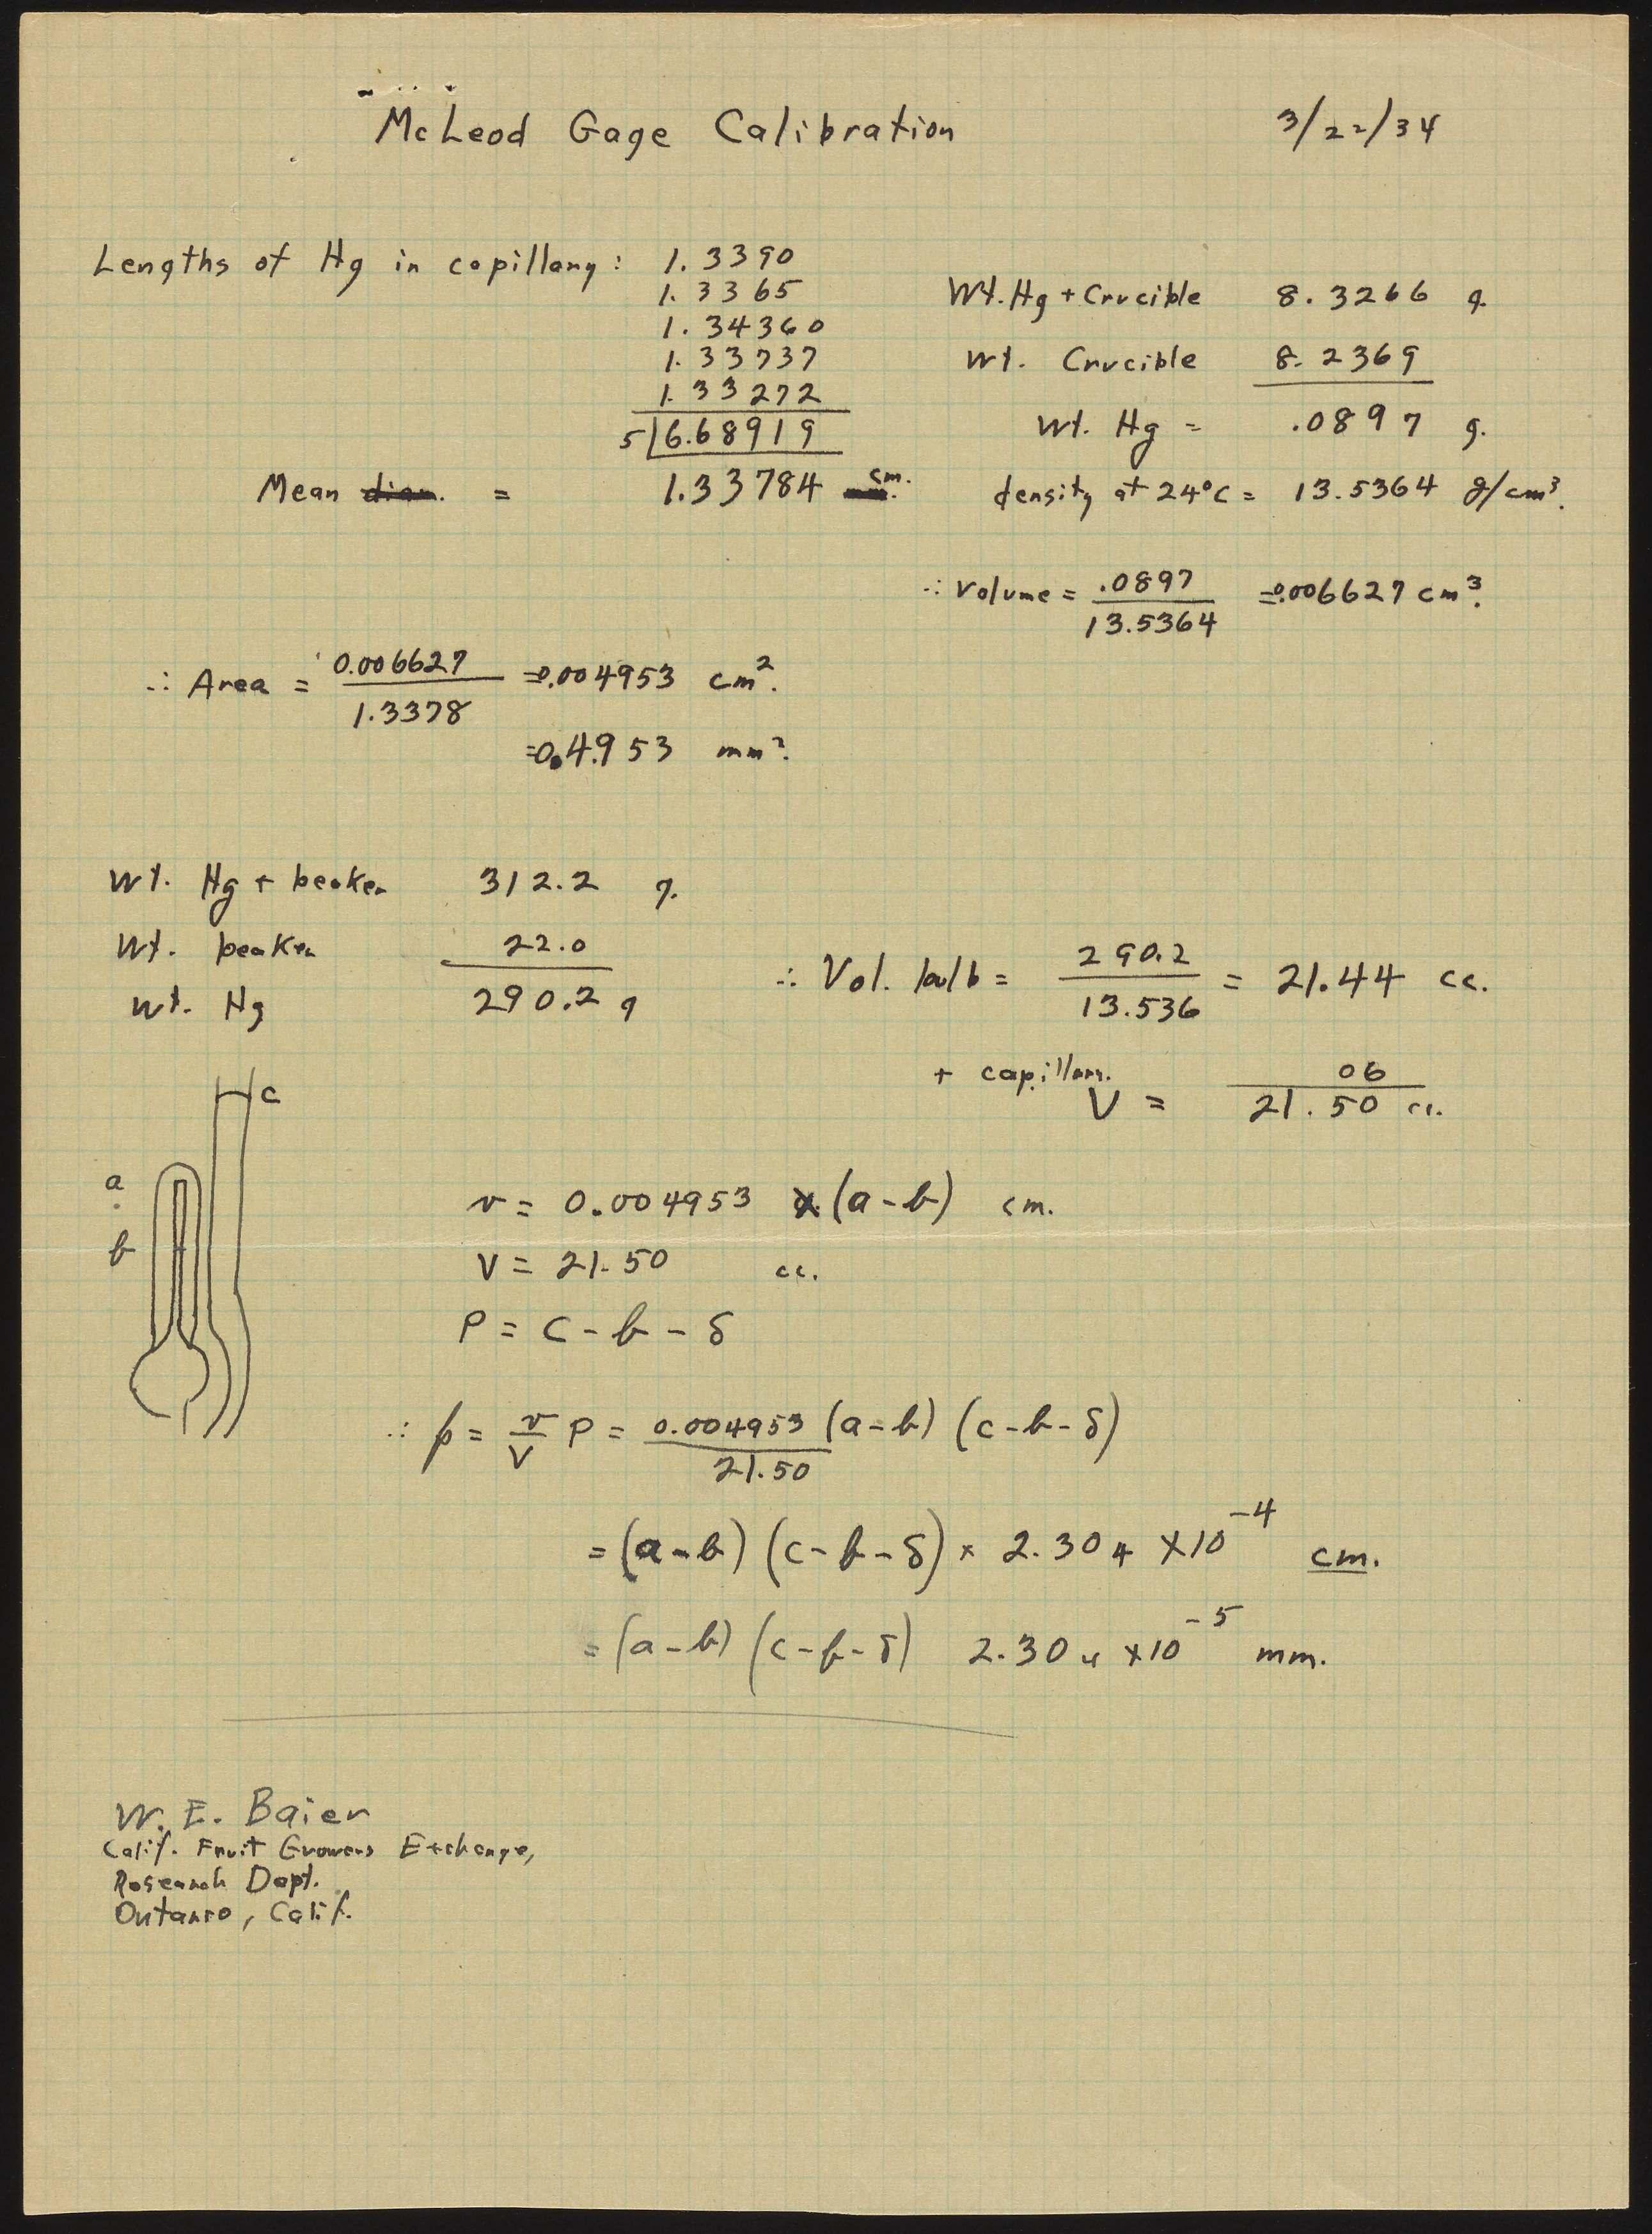 McLeod Gage Calibration 3/22/34
Lengths of Hg in capillary: 1.3390
1.3365
1.34360
1.33737
1.33272
5 6.68919
Mean diam. = 1.33784 cm.
Wt. Hg + Crucible 8.3266 g.
Wt. Crucible 8.2369
Wt. Hg = .0897 g.
density at 24°C = 13.5364 g/cm³.
∴ Volume = .0897 / 13.5364 = 0.006627 cm³.
∴ Area = 0.006627 / 1.3378 = 0.004953 cm².
= 0.4953 mm².
Wt. Hg + beaker 312.2 g.
Wt. beaker 22.0
Wt. Hg 290.2 g
∴ Vol. bulb = 290.2 / 13.536 = 21.44 cc.
+ capillary. 06
V = 21.50 cc.
c
a
b
v = 0.004953 x (a-b) cm.
V = 21.50 cc.
P = c - b - δ
∴ p = v/V P = 0.004953 / 21.50 (a-b) (c-b-δ)
= (a-b) (c-b-δ) x 2.304 x10⁻⁴ cm.
= (a-b) (c-b-δ) 2.304 x10⁻⁵ mm.
W. E. Baier
Calif. Fruit Growers Exchange,
Research Dept.
Ontario, Calif.